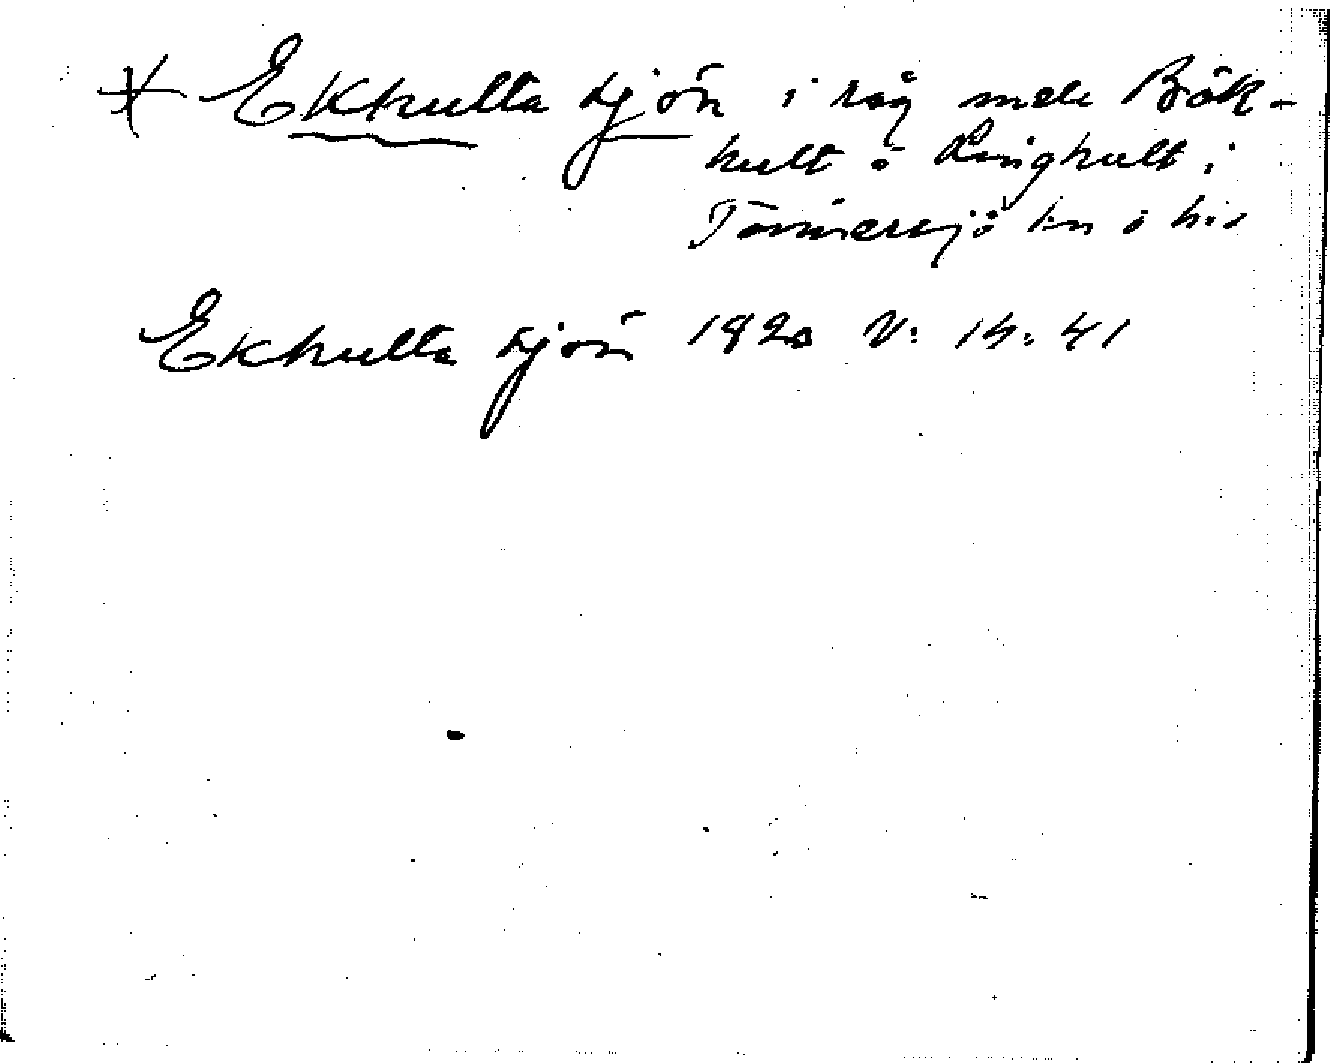 Ekhulta tjön i råg med Bök-
hult o Linghult i
Tönnersjö sn o hd
Ekhulta tjön 1820 V: 14: 41